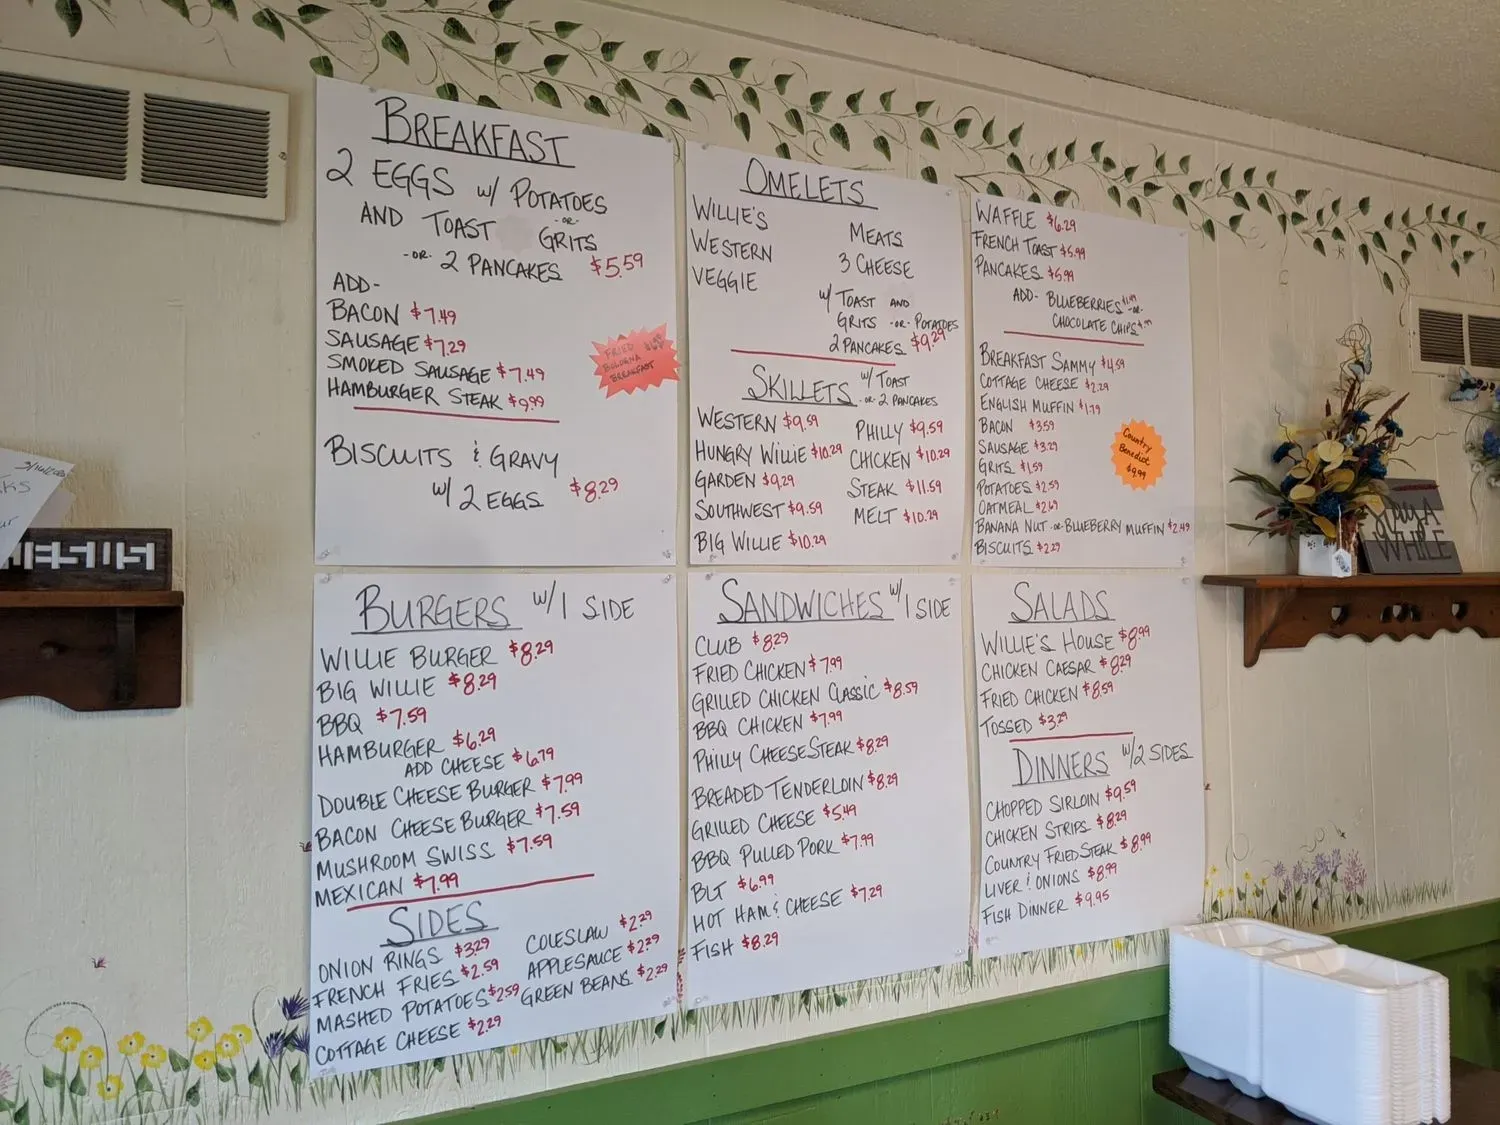 BREAKFAST
2 EGGS W/ POTATOES
-OR-
AND TOAST GRITS
-OR- 2 PANCAKES $5.59
ADD-
BACON $7.49
SAUSAGE $7.29
SMOKED SAUSAGE $7.49
HAMBURGER STEAK $9.99
FRIED
BOLOGNA
BREAKFAST
BISCUITS & GRAVY
W/ 2 EGGS $8.29
OMELETS
WILLIE'S
WESTERN
VEGGIE
MEATS
3 CHEESE
W/ TOAST AND
GRITS -OR- POTATOES
2 PANCAKES $9.29
SKILLETS W/ TOAST
-OR- 2 PANCAKES
WESTERN $9.59
HUNGRY WILLIE $10.29
GARDEN $9.29
SOUTHWEST $9.59
BIG WILLIE $10.29
PHILLY $9.59
CHICKEN $10.29
STEAK $11.59
MELT $10.29
WAFFLE $6.29
FRENCH TOAST $5.99
PANCAKES $5.99
ADD- BLUEBERRIES
-OR-
CHOCOLATE CHIPS
BREAKFAST SAMMY $4.59
COTTAGE CHEESE $2.29
ENGLISH MUFFIN $1.79
BACON $3.59
SAUSAGE $3.29
GRITS $1.59
POTATOES $2.59
OATMEAL $2.69
BANANA NUT -OR- BLUEBERRY MUFFIN $2.49
BISCUITS $2.29
Country
Benedict
$9.99
BURGERS W/1 SIDE
WILLIE BURGER $8.29
BIG WILLIE $8.29
BBQ $7.59
HAMBURGER $6.29
ADD CHEESE $6.79
DOUBLE CHEESE BURGER $7.99
BACON CHEESE BURGER $7.59
MUSHROOM SWISS $7.59
MEXICAN $7.99
SIDES
ONION RINGS $3.29
FRENCH FRIES $2.59
MASHED POTATOES $2.59
COTTAGE CHEESE $2.29
COLESLAW $2.29
APPLESAUCE $2.29
GREEN BEANS $2.29
SANDWICHES W/1 SIDE
CLUB $8.29
FRIED CHICKEN $7.99
GRILLED CHICKEN CLASSIC $8.59
BBQ CHICKEN $7.99
PHILLY CHEESE STEAK $8.29
BREADED TENDERLOIN $8.29
GRILLED CHEESE $5.49
BBQ PULLED PORK $7.99
BLT $6.99
HOT HAM & CHEESE $7.29
FISH $8.29
SALADS
WILLIE'S HOUSE $8.99
CHICKEN CAESAR $8.29
FRIED CHICKEN $8.59
TOSSED $3.29
DINNERS W/2 SIDES
CHOPPED SIRLOIN $9.59
CHICKEN STRIPS $8.29
COUNTRY FRIED STEAK $8.99
LIVER & ONIONS $8.99
FISH DINNER $9.95
STAY A
WHILE